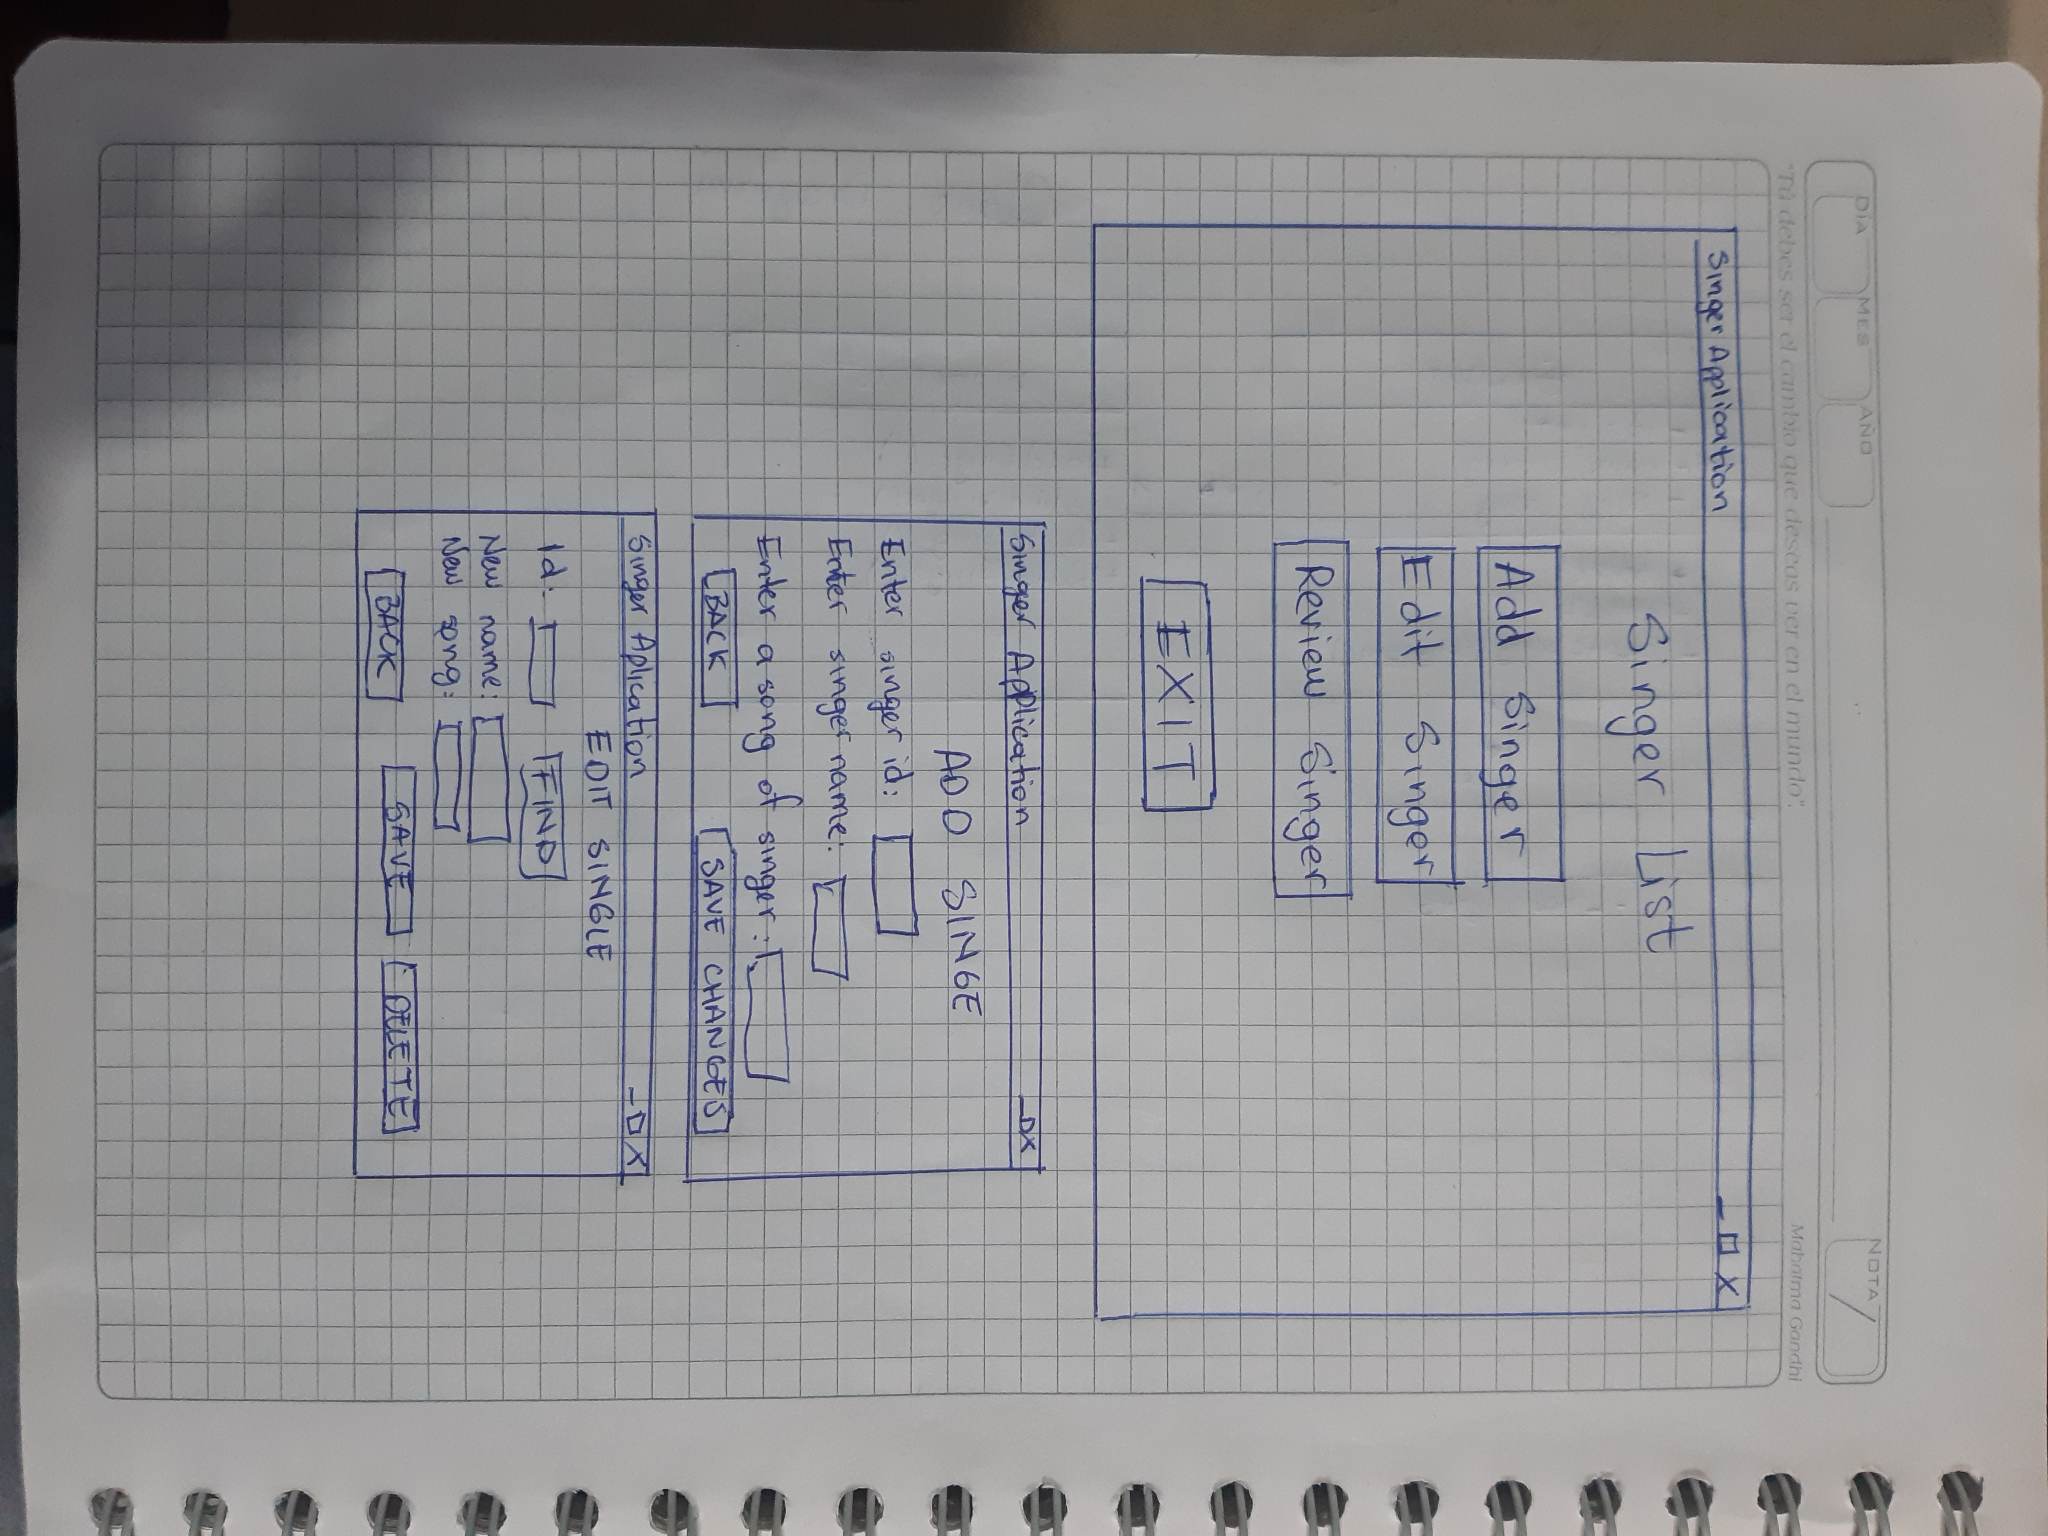 DÍA MES AÑO NOTA
"Tú debes ser el cambio que deseas ver en el mundo".
Mahatma Gandhi
Singer Application _ □ X
Singer List
Add Singer
Edit Singer
Review Singer
EXIT
Singer Application _ □ X
ADD SINGE
Enter singer id:
Enter singer name:
Enter a song of singer:
BACK SAVE CHANGES
Singer Aplication _ □ X
EDIT SINGLE
Id: FIND
New name:
New song:
BACK SAVE DELETE